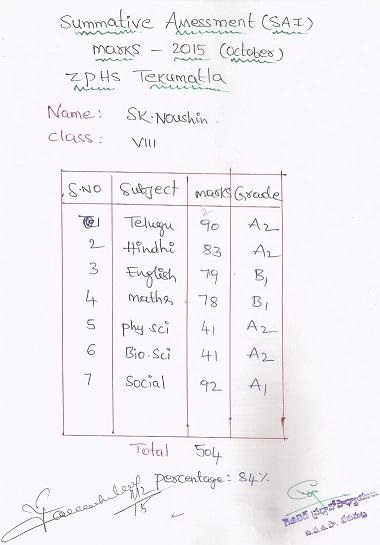 Summative Assessment (SAI)
marks - 2015 (October)
ZPHS Tekumatla
Name: SK. Noushin.
class: VIII
S.NO Subject marks Grade
1 Telugu 90 A2
2 Hindhi 83 A2
3 English 79 B1
4 maths 78 B1
5 phy.sci 41 A2
6 Bio.Sci 41 A2
7 Social 92 A1
Total 504
percentage: 84%